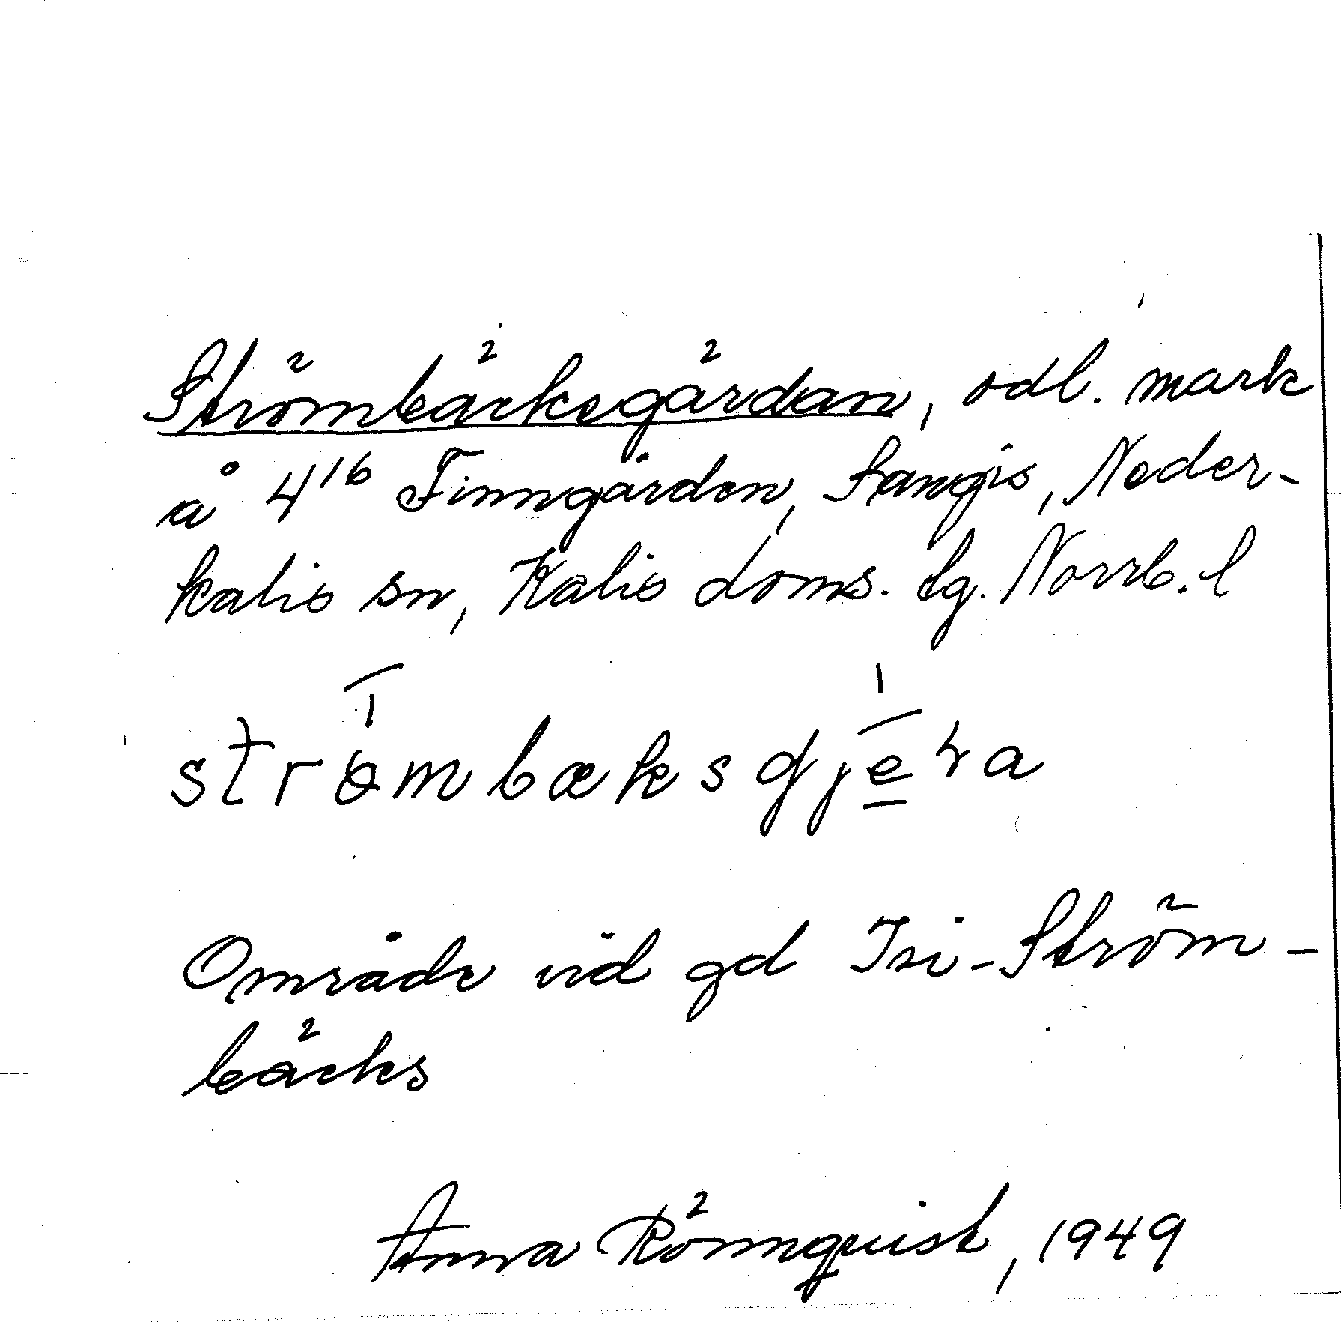 Strömbäcksgärdan, odl. mark
å 4¹⁶ Finngården, Sangis, Neder-
kalix sn, Kalix doms. lg. Norrb. l
strømbæksgjera
Område vid gd Isi-Ström-
bäcks
Anna Rönnquist, 1949